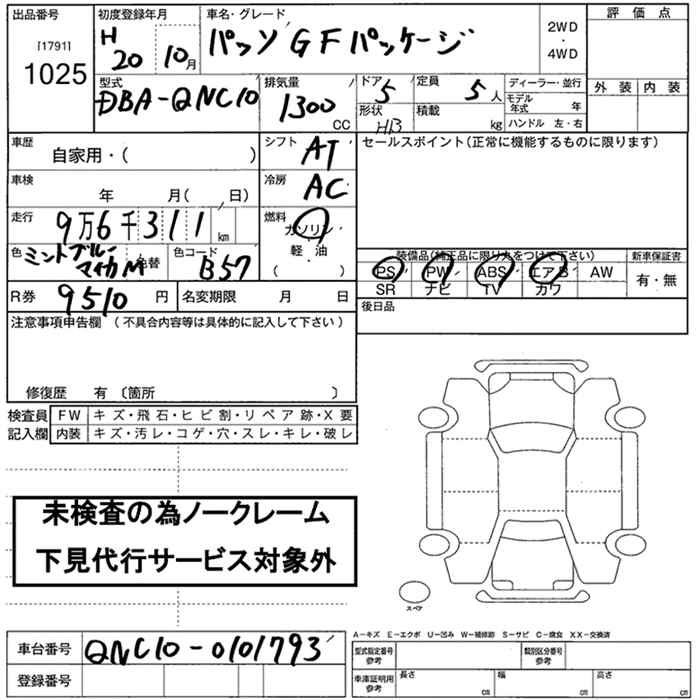 出品番号 初度登録年月 車名・グレード 2WD ・ 4WD 評価点
[1791]
1025
H 20 10月
パッソ GFパッケージ
外装 内装
型式 排気量 ドア 定員 ディーラー・並行
DBA-QNC10 1300 CC 5 5人
モデル年式 年
形状 HB 積載 kg ハンドル 左・右
車歴 自家用・( )
シフト AT
セールスポイント(正常に機能するものに限ります)
車検 年 月( 日)
冷房 AC
走行 9万6千311km
燃料 ガソリン 軽・油 ( )
色 ミントブルーマイカM 色替 色コード B57
装備品(純正品に限り丸をつけて下さい) 新車保証書
PS PW ABS エアB AW
SR ナビ TV カワ
有・無
R券 9510円 名変期限 月 日
後日品
注意事項申告欄 (不具合内容等は具体的に記入して下さい)
修復歴 有 〔箇所 〕
検査員記入欄
FW キズ・飛石・ヒビ割・リペア跡・X要
内装 キズ・汚レ・コゲ・穴・スレ・キレ・破レ
未検査の為ノークレーム
下見代行サービス対象外
スペア
A-キズ E-エクボ U-凹み W-補修跡 S-サビ C-腐食 XX-交換済
車台番号 QNC10-0101793
型式指定番号 参考 類別区分番号 参考
登録番号
車庫証明用 参考 長さ cm 幅 cm 高さ cm